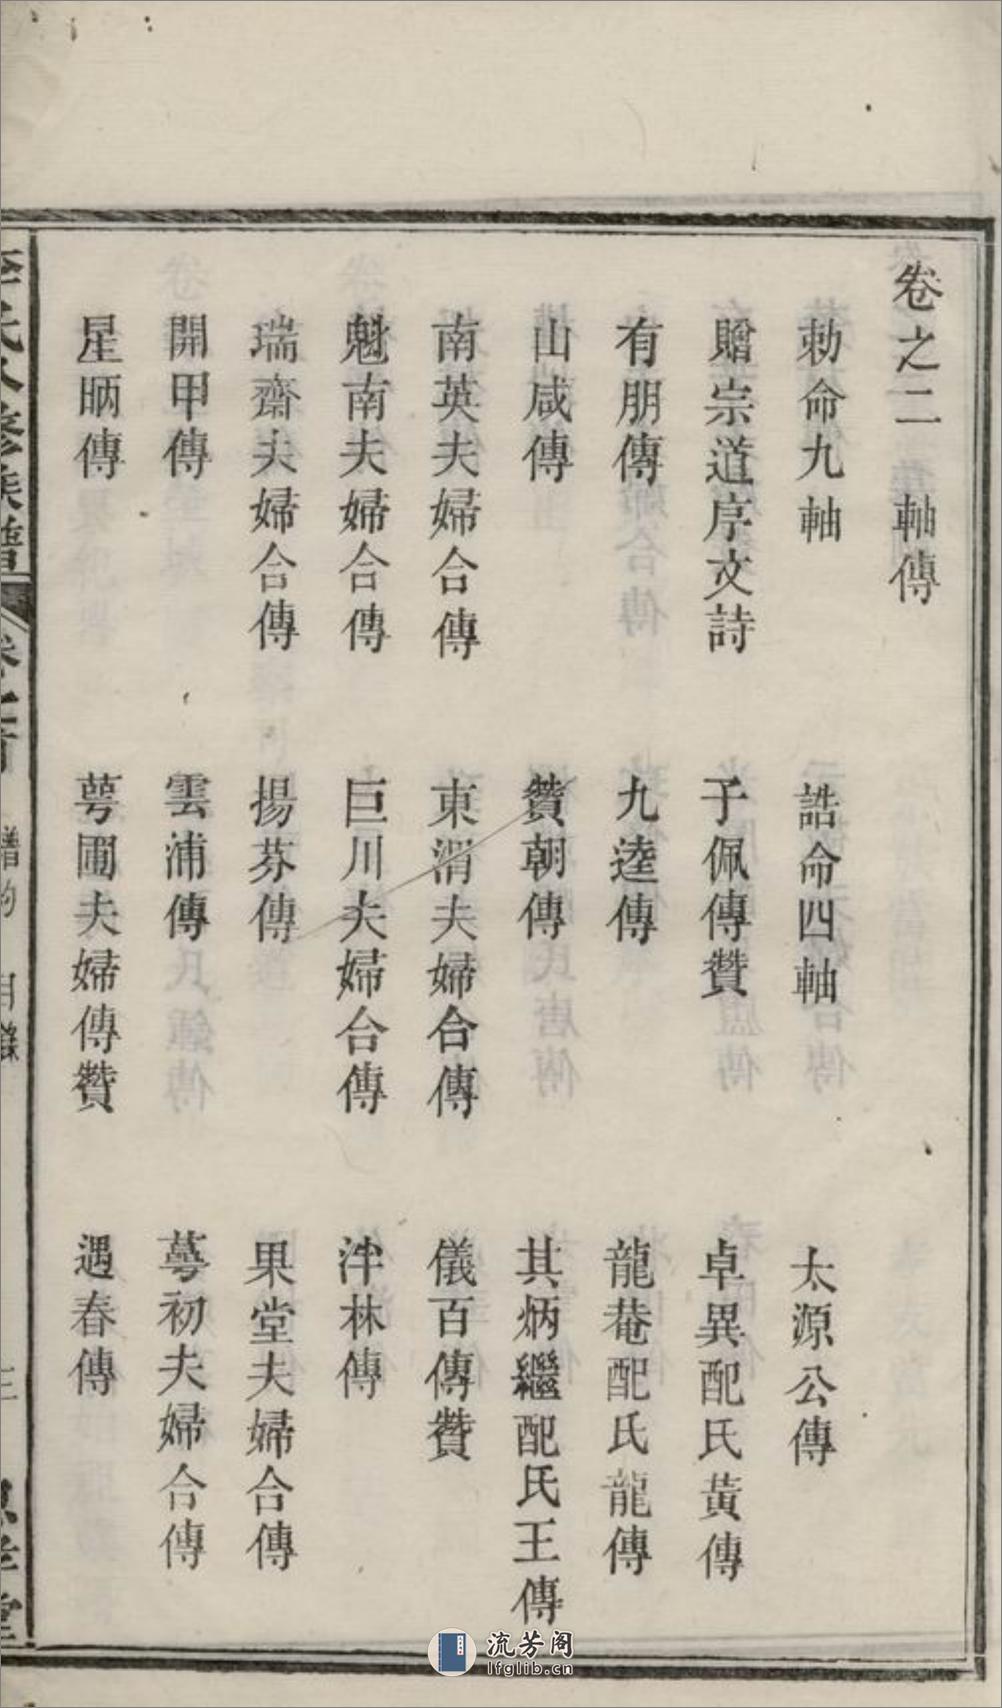 卷之二 軸傳
勅命九軸 誥命四軸 太源公傳
贈宗道序文詩 子佩傳贊 卓異配氏黃傳
有朋傳 九逵傳 龍菴配氏龍傳
山咸傳 贊朝傳 其炳繼配氏王傳
南英夫婦合傳 東渭夫婦合傳 儀百傳贊
魁南夫婦合傳 巨川夫婦合傳 泮林傳
瑞齋夫婦合傳 揚芬傳 果堂夫婦合傳
開甲傳 雲浦傳 蕚初夫婦合傳
星昞傳 蕚圃夫婦傳贊 遇春傳
氏 修族譜 卷之首 目錄 三
流芳阁
lfglib.cn